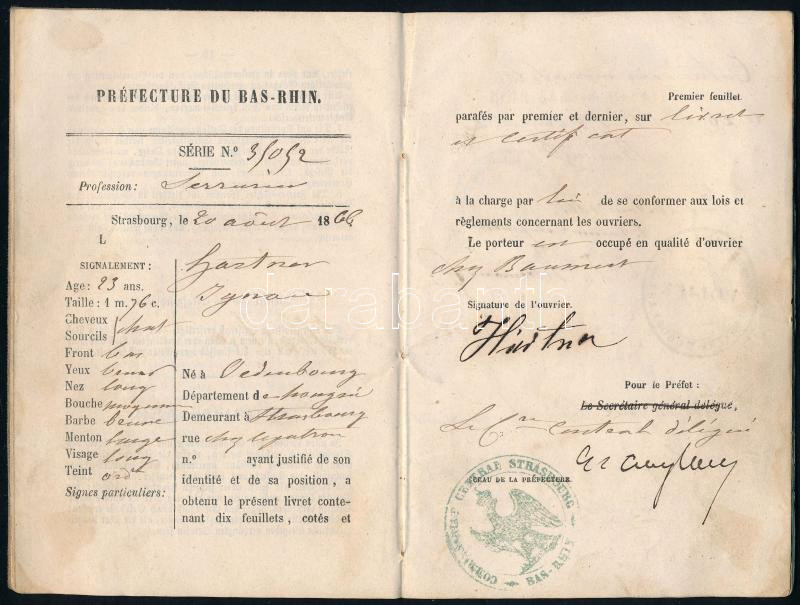 PRÉFECTURE DU BAS-RHIN.
SÉRIE N.º 35052
Profession: Serrurier
Strasbourg, le 20 août 1866
L
SIGNALEMENT:
Age: 23 ans.
Taille: 1 m. 76 c.
Cheveux
Sourcils chat
Front bas
Yeux bruns
Nez long
Bouche moyenne
Barbe brune
Menton large
Visage long
Teint ord.
Signes particuliers:
Hartner
Ignace
Né à Oedenbourg
Département de hongrie
Demeurant à Strasbourg
rue chez le patron
n.º ayant justifié de son
identité et de sa position, a
obtenu le présent livret conte-
nant dix feuillets, cotés et
Premier feuillet.
parafés par premier et dernier, sur livret
et certificat
à la charge par lui de se conformer aux lois et
règlements concernant les ouvriers.
Le porteur est occupé en qualité d'ouvrier
chez Baumert
Signature de l'ouvrier.
Hartner
Pour le Préfet:
Le Secrétaire général délégué,
Le Cre central délégué
SCEAU DE LA PRÉFECTURE.
COMMISSARIAT CENTRAL STRASBOURG
BAS-RHIN
darabanth